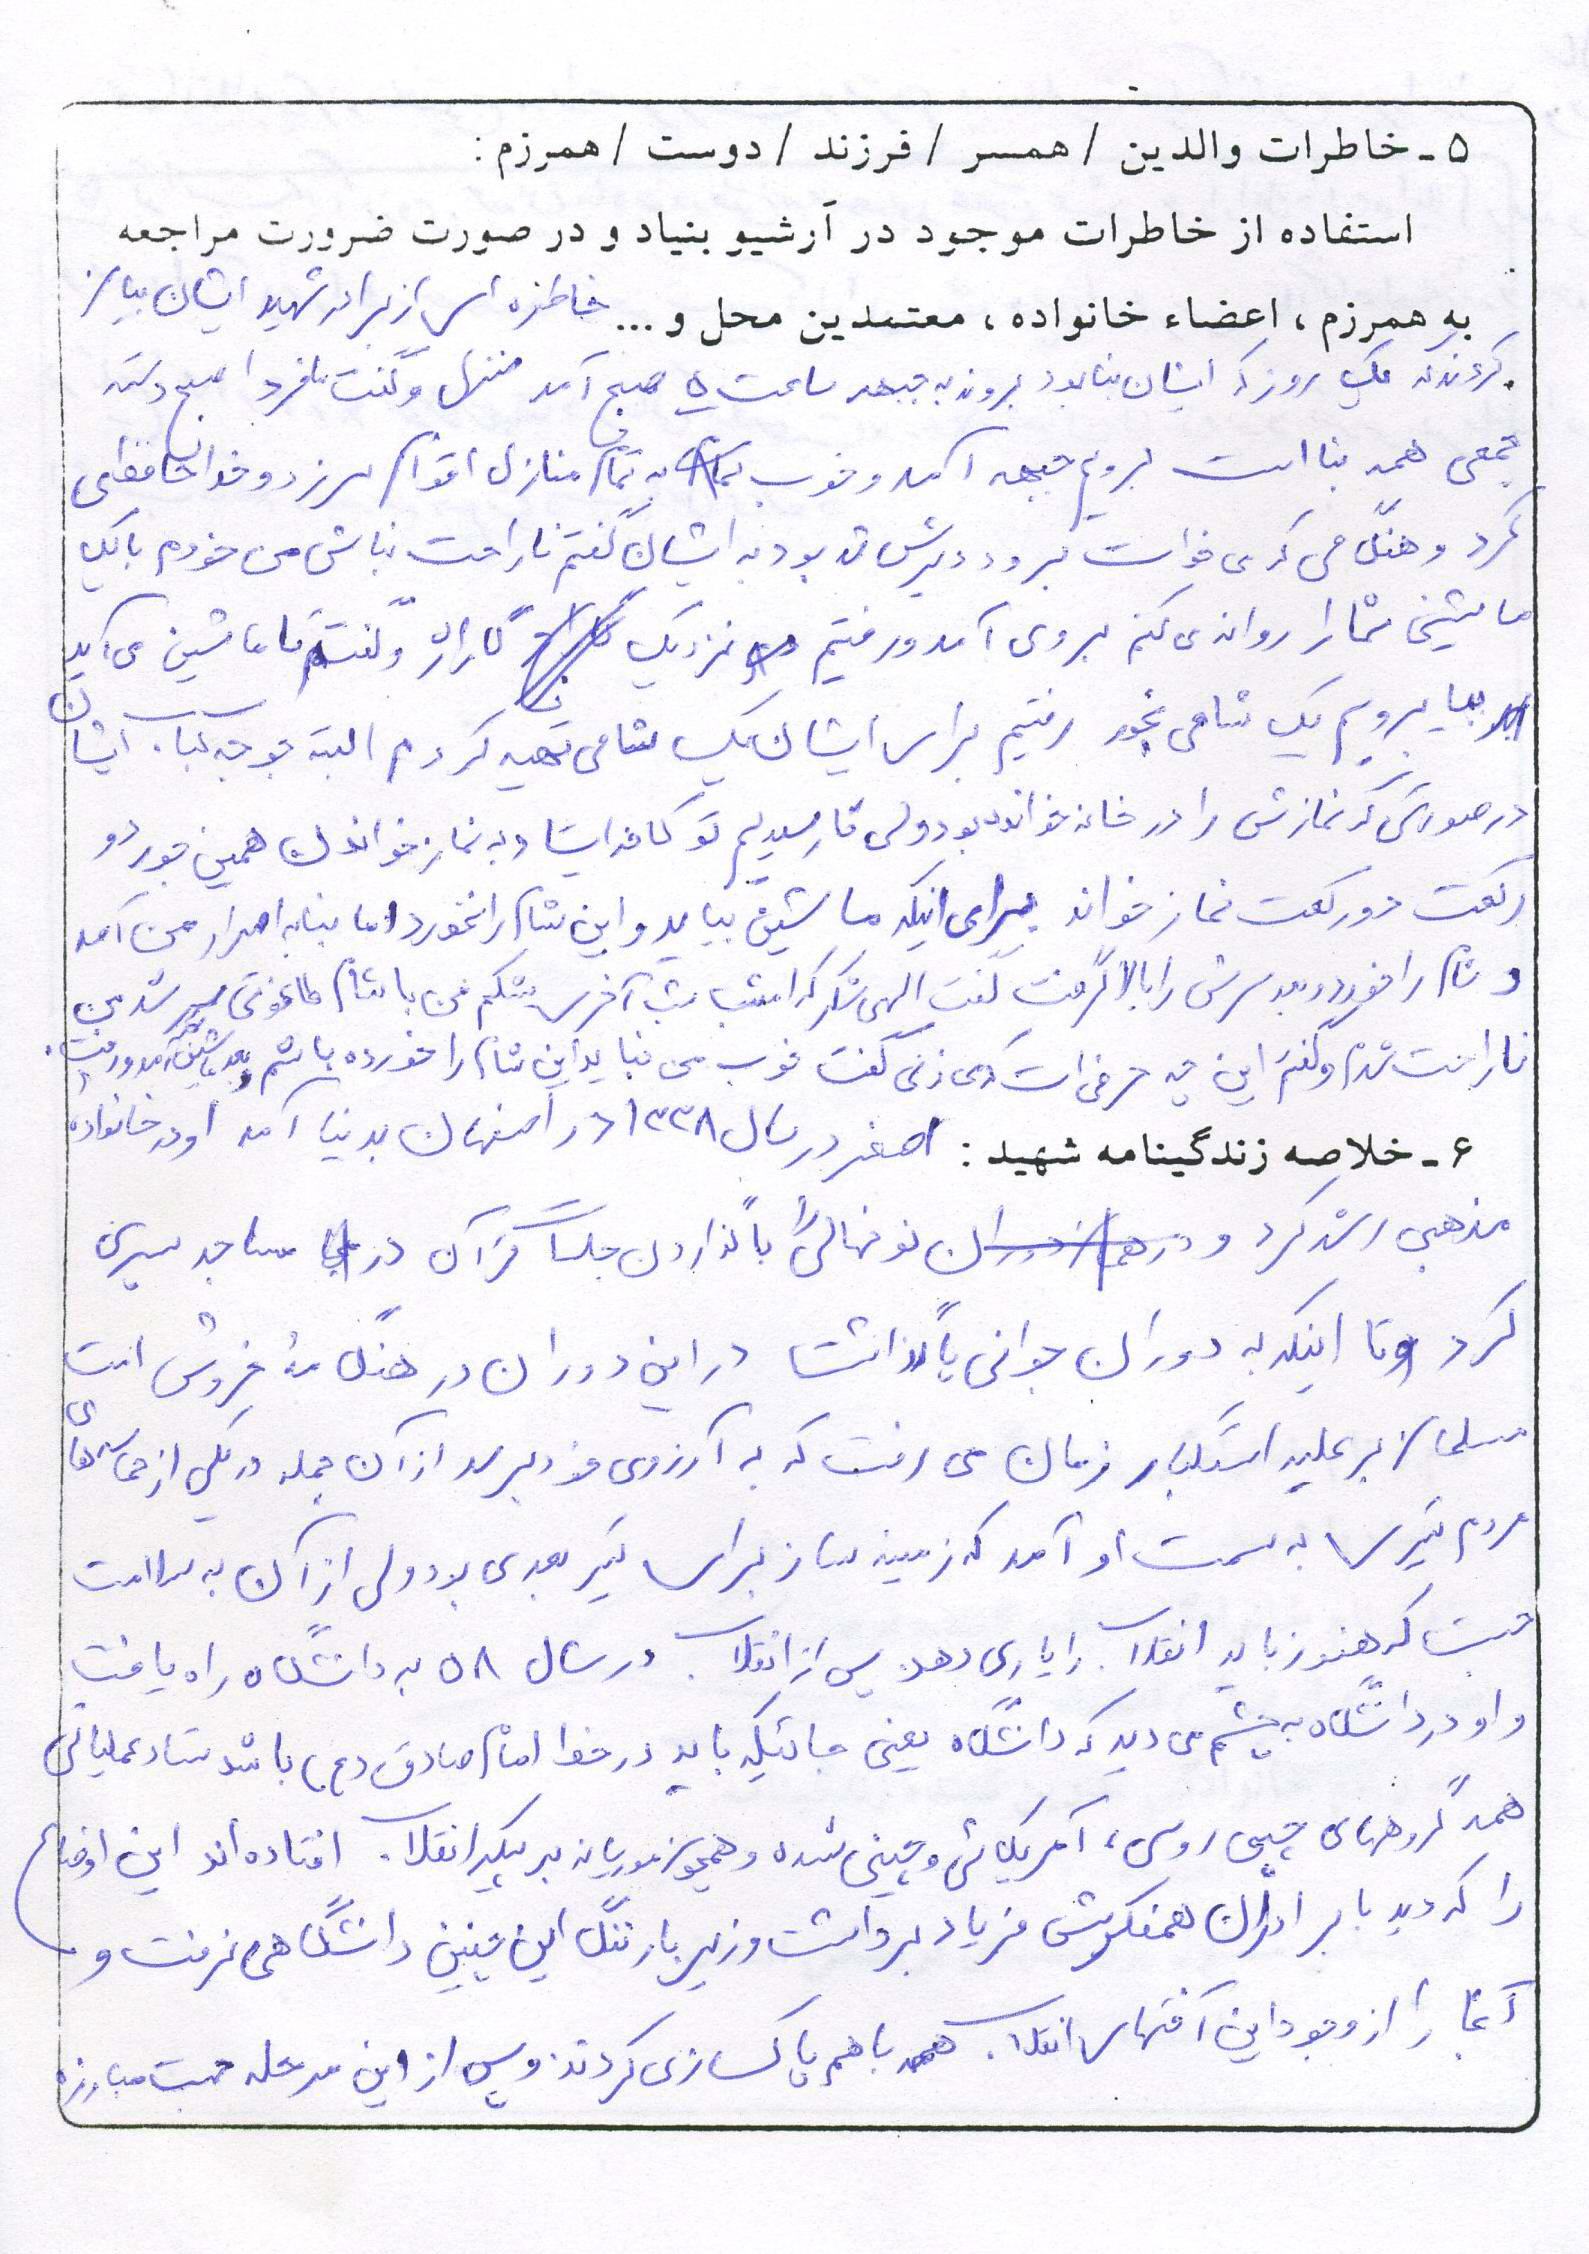 ۵ ـ خاطرات والدین / همسر / فرزند / دوست / همرزم :
استفاده از خاطرات موجود در آرشیو بنیاد و در صورت ضرورت مراجعه
به همرزم ، اعضاء خانواده ، معتمدین محل و ... خاطره ای از برادر شهید ایشان بیان
کردند که یک روز که ایشان بنا بود بروند به جبهه ساعت ۵ صبح آمد منزل و گفت فردا صبح دسته
جمعی همه بنا است برویم جبهه آمد و خوب به تمام منازل اقوام سر زد و خداحافظی
کرد و هنگامی که می خواست برود دیرش شده بود به ایشان گفتم ناراحت نباش من خودم با یک
ماشینی شما را روانه می کنم بروی آمد و رفتیم نزدیک گاراژ و گفتم تا ماشین می آید
بیا برویم یک شامی بخور رفتیم برای ایشان یک شامی تهیه کردم البته جوجه کباب. ایشان
در صورتی که نمازش را در خانه خوانده بود ولی تا رسیدیم تو کافه ایستاد به نماز خواندن همین جور دو
رکعت دو رکعت نماز خواند برای اینکه ماشین بیاید و این شام را نخورد اما بنا به اصرار من آمد
و شام را خورد و بعد سرش را بالا گرفت گفت الهی شکر که امشب شب آخری شکم من با شام طاغوتی سیر شد من
ناراحت شدم و گفتم این چه حرفی است که می زنی گفت خوب من نباید این شام را خورده باشم بعد ماشین آمد و رفت.
۶ ـ خلاصه زندگینامه شهید : اصغر در سال ۱۳۳۸ در اصفهان بدنیا آمد او در خانواده
مذهبی رشد کرد و نونهالی را با گذاردن جلسات قرآن در مساجد سپری
کرد و تا اینکه به دوران جوانی پا گذاشت در این دوران در هنگامهٔ خروش امت
مسلمان بر علیه استکبار زمان می رفت که به آرزوی خود برسد از آن جمله در یکی از حماسه های
مردم تیری به سمت او آمد که زمینه ساز برای تیر بعدی بود ولی از آن به سلامت
جست که هنوز باید انقلاب را یاری دهد. پس از انقلاب در سال ۵۸ به دانشگاه راه یافت
و او در دانشگاه به چشم می دید که دانشگاه یعنی جائیکه باید در خط امام صادق (ع) باشد ستاد عملیاتی
همه گروههای چپی روسی، آمریکائی و چینی شده و همچون موریانه بر پیکر انقلاب افتاده اند این اوضاع
را که دید با برادران همفکرش فریاد برداشت و زیر بار ننگ این چنین دانشگاهی نرفت و
آنجا را از وجود این آفتهای انقلاب با هم پاکسازی کردند و پس از این مرحله جهت مبارزه